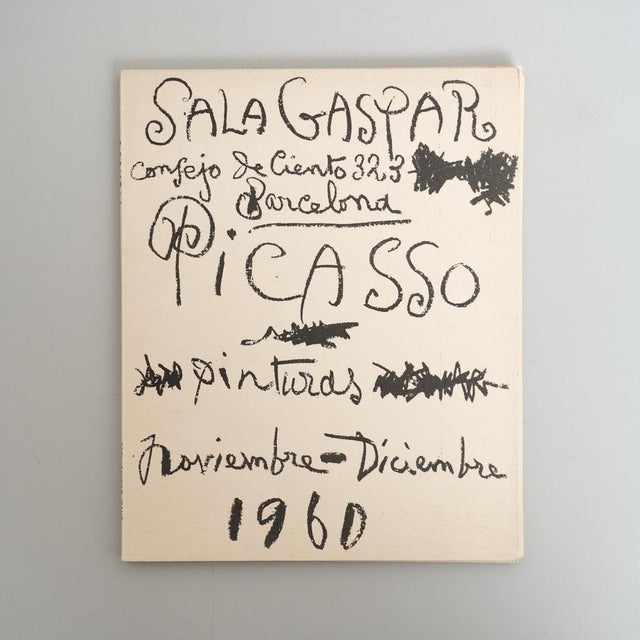 SALA GASPAR
Consejo de Ciento 323
Barcelona
PiCASSO
pinturas
Noviembre - Diciembre
1960